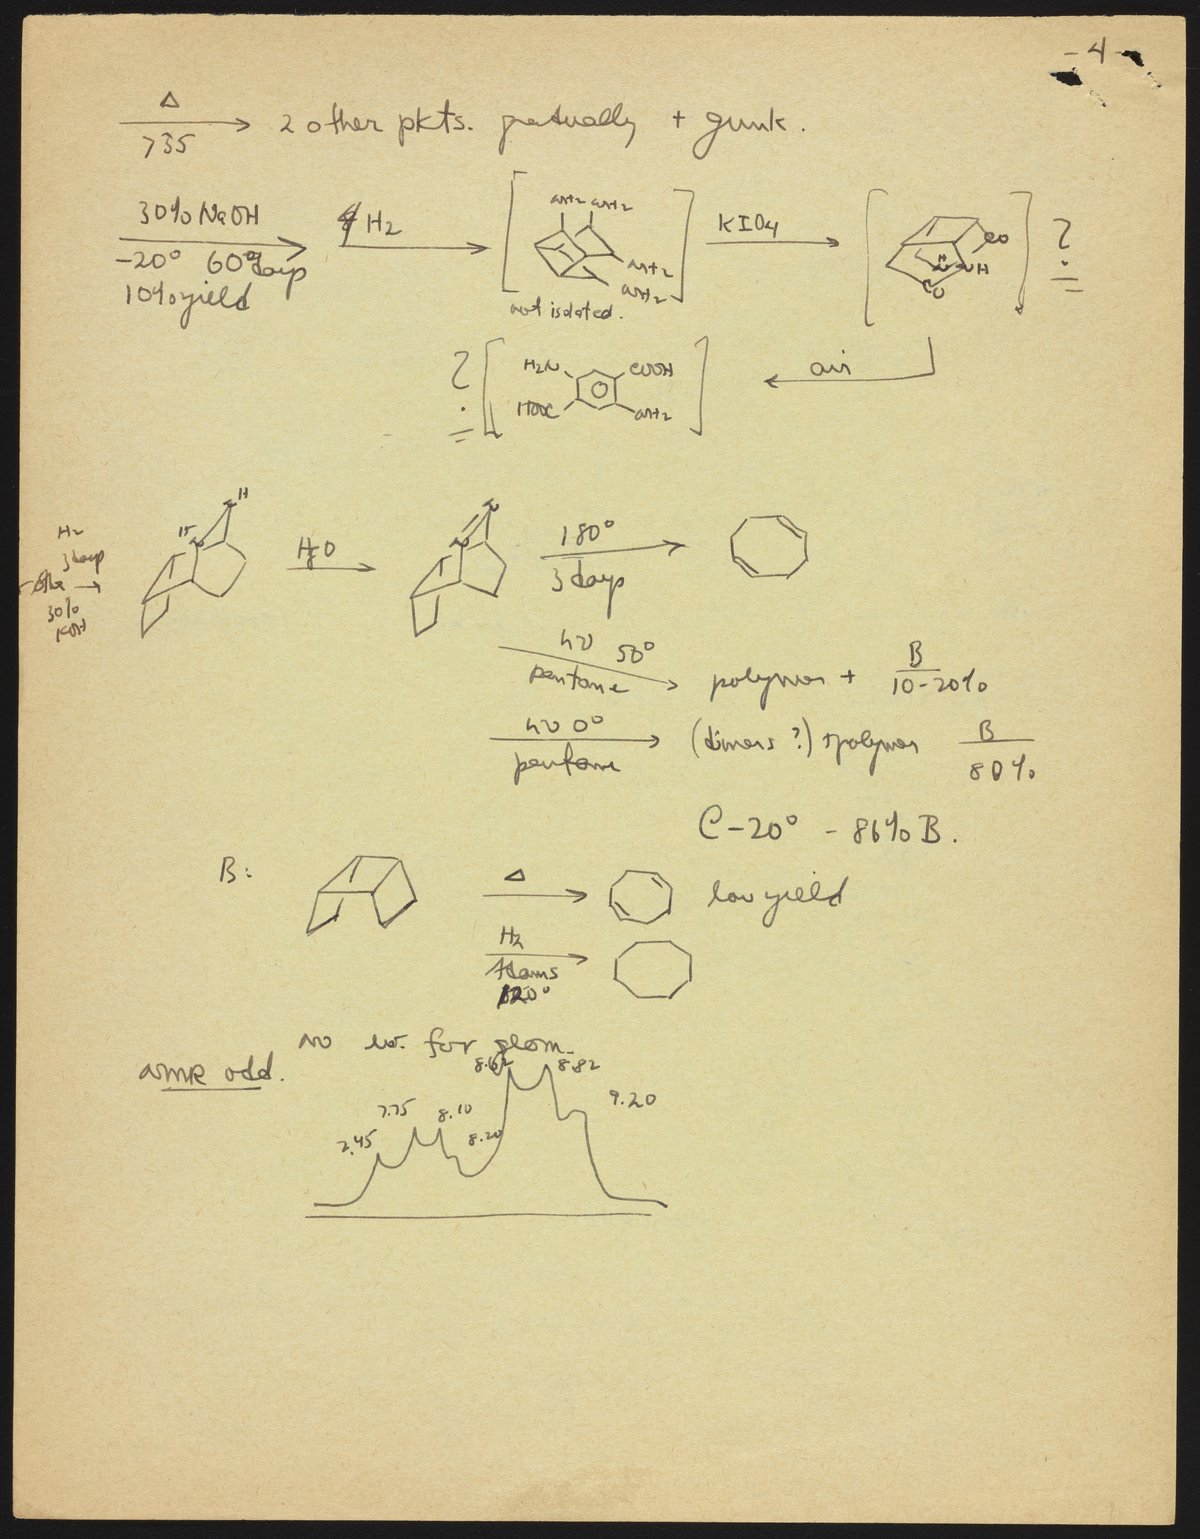 - 4 -
Δ
735
2 other pkts. gradually + gunk.
30% NaOH
-20° 60 days
10% yield
H2
NH2 NH2
NH2
NH2
not isolated.
KIO4
CO
N NH
CO
?
air
?
H2N COOH
HOOC NH2
H2
3 days
30%
KOH
H
N
HN
HgO
N
N
180°
3 days
hν 50°
pentane
polymer + B
10-20%
hν 0°
pentane
(dimers ?) + polymer B
80%
@ -20° - 86% B.
B:
Δ
low yield
H2
Adams
120°
no ev. for geom.
NMR odd.
8.62 8.82
9.20
7.75 8.10
7.45 8.20